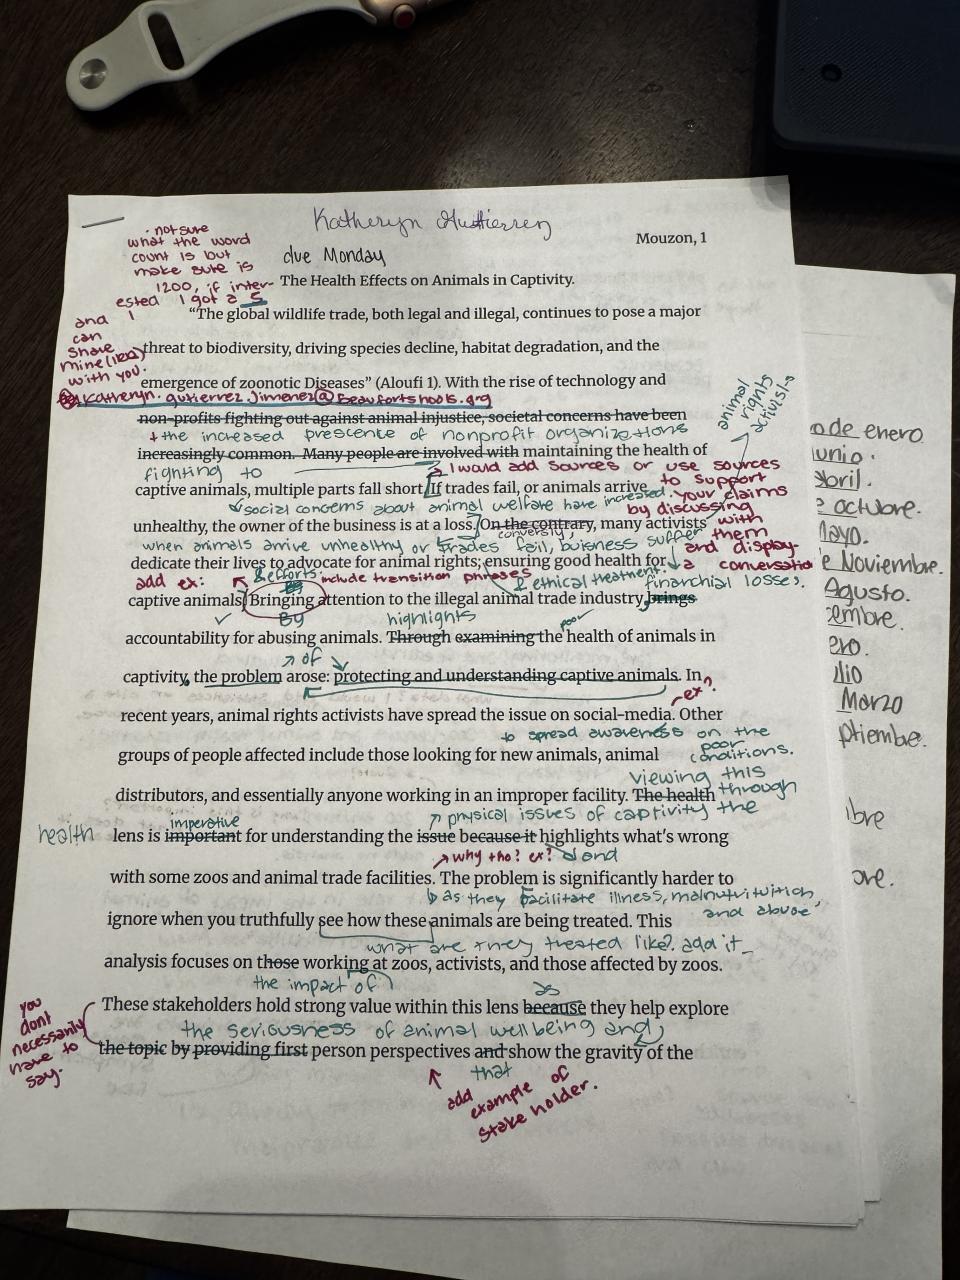 Katheryn Gutierrez
Mouzon, 1
· not sure
what the word
count is but
make sure is
1200, if inter-
ested I got a 5
and I
can
share
mine (IRR)
with you.
due Monday
The Health Effects on Animals in Captivity.
“The global wildlife trade, both legal and illegal, continues to pose a major
threat to biodiversity, driving species decline, habitat degradation, and the
emergence of zoonotic Diseases” (Aloufi 1). With the rise of technology and
Katheryn.gutierrez.Jimenez@Beaufortshools.org
animal
rights
activists
non-profits fighting out against animal injustice, societal concerns have been
+ the increased prescence of nonprofit organizations
increasingly common. Many people are involved with maintaining the health of
fighting to
I would add sources or use sources
to support
your claims
by discussing
with
them
and display-
a conversation
captive animals, multiple parts fall short. If trades fail, or animals arrive
social concerns about animal welfare have increased.
unhealthy, the owner of the business is at a loss. On the contrary, many activists
conversly,
when animals arrive unhealthy or trades fail, buisness suffer
financhial losses.
dedicate their lives to advocate for animal rights; ensuring good health for
add ex:
& efforts
include transition phrases
& ethical treatment.
captive animals. Bringing attention to the illegal animal trade industry brings
By
highlights
poor
accountability for abusing animals. Through examining the health of animals in
of
captivity, the problem arose: protecting and understanding captive animals. In
ex?
recent years, animal rights activists have spread the issue on social-media. Other
to spread awareness on the
poor
conditions.
groups of people affected include those looking for new animals, animal
viewing this
distributors, and essentially anyone working in an improper facility. The health through
through
imperative
physical issues of captivity the
health
lens is important for understanding the issue because it highlights what’s wrong
why tho? ex?
and
with some zoos and animal trade facilities. The problem is significantly harder to
as they facilitate illness, malnutrituition,
and abuse
ignore when you truthfully see how these animals are being treated. This
what are they treated like? add it
analysis focuses on those working at zoos, activists, and those affected by zoos.
the impact of
as
These stakeholders hold strong value within this lens because they help explore
the seriousness of animal wellbeing and
the topic by providing first person perspectives and show the gravity of the
that
you
dont
necessarily
have to
say.
add
example of
stake holder.
o de enero.
unio.
bril.
octubre.
Mayo.
e Noviembre.
Agusto.
embre.
ero.
lio
Marzo
ptiembre.
ibre
ore.